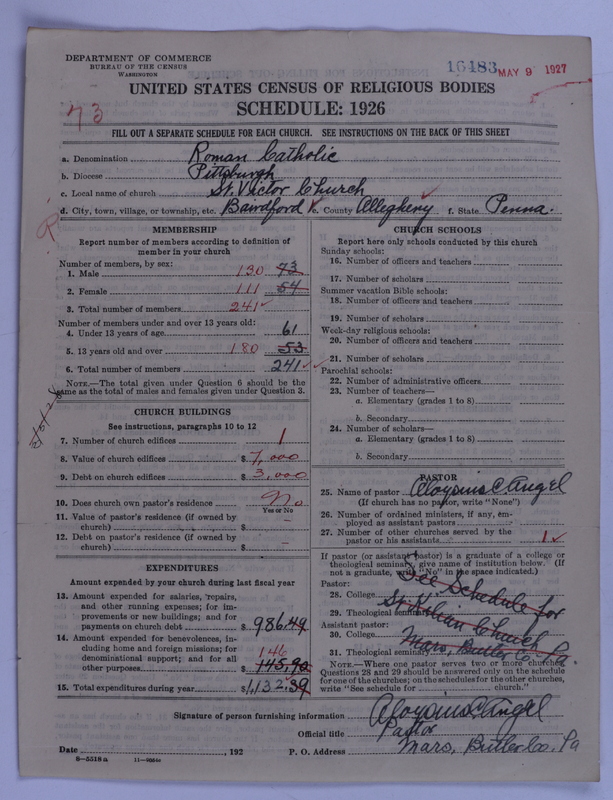 DEPARTMENT OF COMMERCE
BUREAU OF THE CENSUS
WASHINGTON
16483 MAY 9 1927
UNITED STATES CENSUS OF RELIGIOUS BODIES
SCHEDULE: 1926
73
FILL OUT A SEPARATE SCHEDULE FOR EACH CHURCH. SEE INSTRUCTIONS ON THE BACK OF THIS SHEET
a. Denomination Roman Catholic
b. Diocese Pittsburgh
c. Local name of church St. Victor Church
d. City, town, village, or township, etc. Bairdford e. County Allegheny f. State Penna.
MEMBERSHIP
Report number of members according to definition of
member in your church
Number of members, by sex:
1. Male 130 73
2. Female 111 54
3. Total number of members 241
Number of members under and over 13 years old:
4. Under 13 years of age 61
5. 13 years old and over 180 53
6. Total number of members 241
NOTE.—The total given under Question 6 should be the
same as the total of males and females given under Question 3.
CHURCH BUILDINGS
See instructions, paragraphs 10 to 12
7. Number of church edifices 1
8. Value of church edifices $ 7,000
9. Debt on church edifices $ 3,000
10. Does church own pastor's residence No
Yes or No
11. Value of pastor's residence (if owned by
church) $ –
12. Debt on pastor's residence (if owned by
church) $ –
EXPENDITURES
Amount expended by your church during last fiscal year
13. Amount expended for salaries, repairs,
and other running expenses; for im-
provements or new buildings; and for
payments on church debt $ 986.49
14. Amount expended for benevolences, in-
cluding home and foreign missions; for
denominational support; and for all
other purposes 146 145.90
15. Total expenditures during year $ 1,132.39
CHURCH SCHOOLS
Report here only schools conducted by this church
Sunday schools:
16. Number of officers and teachers
17. Number of scholars
Summer vacation Bible schools:
18. Number of officers and teachers
19. Number of scholars
Week-day religious schools:
20. Number of officers and teachers
21. Number of scholars
Parochial schools:
22. Number of administrative officers
23. Number of teachers—
a. Elementary (grades 1 to 8)
b. Secondary
24. Number of scholars—
a. Elementary (grades 1 to 8)
b. Secondary
PASTOR
25. Name of pastor Aloysius C Angel
(If church has no pastor, write "None")
26. Number of ordained ministers, if any, em-
ployed as assistant pastors
27. Number of other churches served by the
pastor or his assistants 1
If pastor (or assistant pastor) is a graduate of a college or
theological seminary, give name of institution below. (If
not a graduate, write "No" in the space indicated.)
Pastor: See Schedule for
28. College
29. Theological seminary St. Kilian Church
Assistant pastor:
30. College Mars, Butler Co. Pa
31. Theological seminary
NOTE.—Where one pastor serves two or more churches,
Questions 28 and 29 should be answered only on the schedule
for one of the churches; on the schedules for the other churches,
write "See schedule for church."
Signature of person furnishing information Aloysius C Angel
Official title Pastor
Date , 192 P. O. Address Mars, Butler Co. Pa
8—5518a